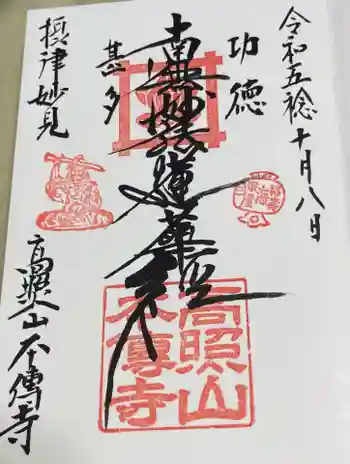 令和五稔十月八日
功德
南無妙法蓮華経
甚多
摂津妙見
高照山本傳寺
高照山
本傳寺